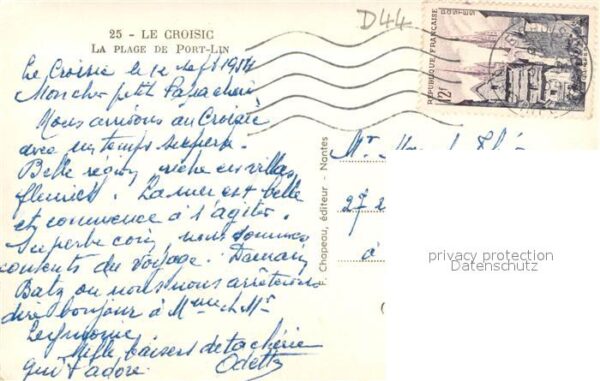 D44
25 - LE CROISIC
LA PLAGE DE PORT-LIN
Le Croisic le 12 sept 1954
Mon cher petit Papa chéri
Nous arrivons au Croisic
avec un temps superbe.
Belle région, riche en villas
fleuries. La mer est belle
et commence à s'agiter.
Superbe coin, nous sommes
contents du voyage. Demain
Batz ou nous nous arrêterons
dire bonjour à Mme et Mr
Mille baisers de ta chérie
qui t'adore. Odette
F. Chapeau, éditeur - Nantes
Mr
27
à
RÉPUBLIQUE FRANÇAISE
POSTES
12F
privacy protection
Datenschutz